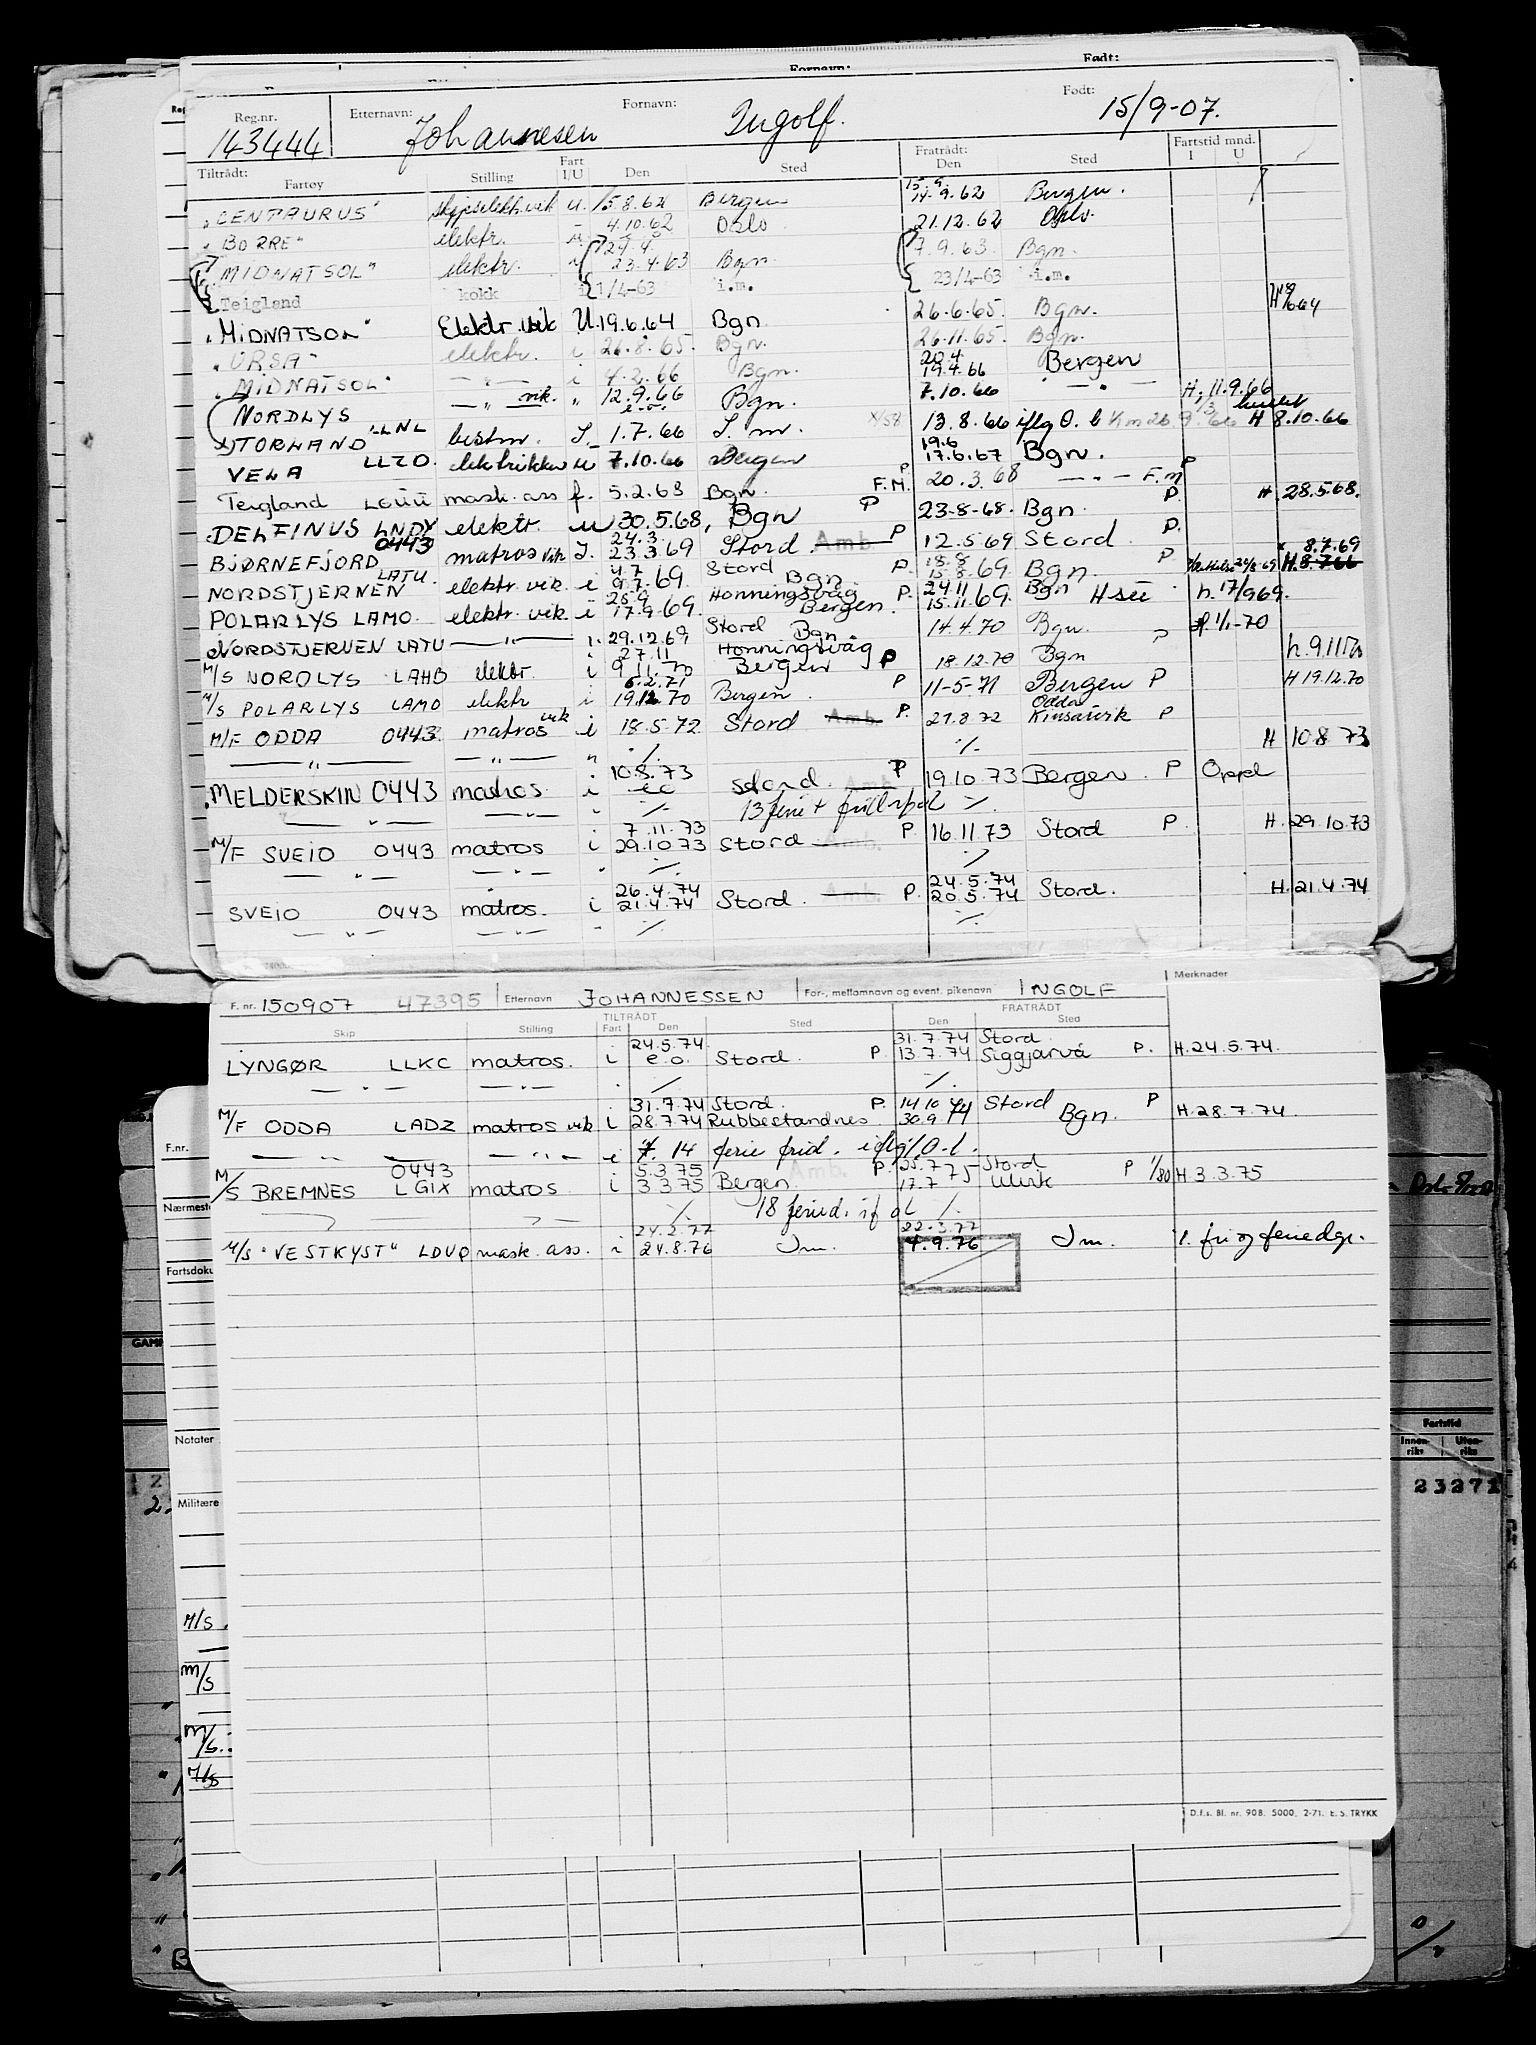 Fornavn: Født:
Reg.nr. Etternavn: Fornavn: Født:
143444 Johannesen Ingolf. 15/9-07.
Tiltrådt: Fratrådt: Fartstid mnd.
Fartøy Stilling Fart I/U Den Sted Den Sted I U
"CENTAURUS" skipselektr.vik u. 15.8.62 Bergen 15.9. 14.9.62 Bergen.
"BORRE" elektr. u 4.10.62 Oslo 21.12.62 Oslo.
"MIDNATSOL" elektr. i 24.4. 23.4.63 Bgn. 7.9.63. Bgn.
Teigland kokk i 1/4-63 i.m. 23/4-63 i.m.
"MIDNATSOL" Elektr. vik U. 19.6.64 Bgn 26.6.65. Bgn.
"URSA" elektr. i 26.8.65. Bgn. 26.11.65. Bgn.
"MIDNATSOL" — " — i 4.2.66 Bgn. 20.4 19.4.66 Bergen
NORDLYS — " — vik. " 12.9.66 Bgn. 7.10.66 — " — H. 11.9.66
STORLAND LLNL bestm. I. 1.7.66 I. m. 13.8.66 iflg O. b H 8.10.66
VELA LLZO. elektriker u 7.10.66 Bergen 19.6 17.6.67 Bgn.
Teigland LGUU mask. ass f. 5.2.68 Bgn. F.M. P 20.3.68 — " — F.M P
DELFINUS LNDY elektr. u 30.5.68, Bgn P 23-8-68. Bgn. P. H. 28.5.68.
BJØRNEFJORD 0443 matros vik I. 24.3. 23.3.69 Stord. Amb. P 12.5.69 Stord. P.
NORDSTJERNEN LATU. elektr. vik. i 4.7 9.7.69. Stord Bgn. P. 18.8 15.8.69. Bgn. P 8.7.69 H.8.7.66
POLARLYS LAMO. elektr. vik. i 25.9 17.9.69. Honningsvåg Bergen. P. 24.11 15.11.69. Bgn H sii h. 17/969.
NORDSTJERNEN LATU — " — i. 29.12.69 Stord Bgn 14.4.70 Bgn. P 1/1-70
M/S NORDLYS LAHB elektr. i 27.11 9.11.70 Honningsvåg Bergen P 18.12.70 Bgn h. 9.11.70
M/S POLARLYS LAMO elektr i 6.2.71 19.12.70 Bergen. P 11-5-71 Bergen P H 19.12.70
M/F ODDA 0443. matros vik i 18.5.72 Stord Amb. P. 27.8 72 Odda Kinsarvik P
— " — — " — " ./. ./. H 10.8 73
MELDERSKIN 0443 matros. i 10.8.73 eo Stord. Amb. P 19.10.73 Bergen. P Oppl
— " — — " — ./. 13 ferie + ./.
M/F SVEIO 0443 matros i 7.11.73 29.10.73 Stord Amb. P. 16.11.73 Stord P. H. 29.10.73
— " — — " — ./. ./.
SVEIO 0443 matros. i 26.4.74 21.4.74 Stord. Amb. P. 24.5.74 20.5.74 Stord. H. 21.4.74
— " — — " — " ./. ./.
F. nr. 150907 47395 Etternavn JOHANNESSEN For-, mellomnavn og event. pikenavn INGOLF Merknader
TILTRÅDT FRATRÅDT
Skip Stilling Fart Den Sted Den Sted
LYNGØR LLKC matros. i 24.5.74. e.o. Stord. P. 31.7.74 13.7.74 Stord. Siggjarvå P. H. 24.5.74.
— " — — " — ./. ./.
M/F ODDA LADZ matros vik i 31.7.74 28.7.74 Stord. Rubbestandnes P. 14.10.74 30.9.74 Stord Bgn. P H. 28.7.74.
— " — — " — i ./. 14 ferie frid. iflg O.l.
M/S BREMNES 0443 LGIX matros i 5.3.75 3.3.75 Bergen. Amb. P. 25.7 17.7 75 Stord. Ulvik P 1/80 H 3.3.75
./. 18 feried. if ol ./.
M/S "VESTKYST" LDVQ mask. ass. i 24.2.77 24.8.76 Im. 22.3.77 4.9.76 Im. ./. fri og feriedgr.
F.nr.
Nærmeste
Fartsdoku
GAMM
Notater
Militære
Fartstid
Innenriks Utenriks
23271
M/S
M/S
M/S
M/S
D.f.s. Bl. nr. 908. 5000. 2-71. E. S. TRYKK